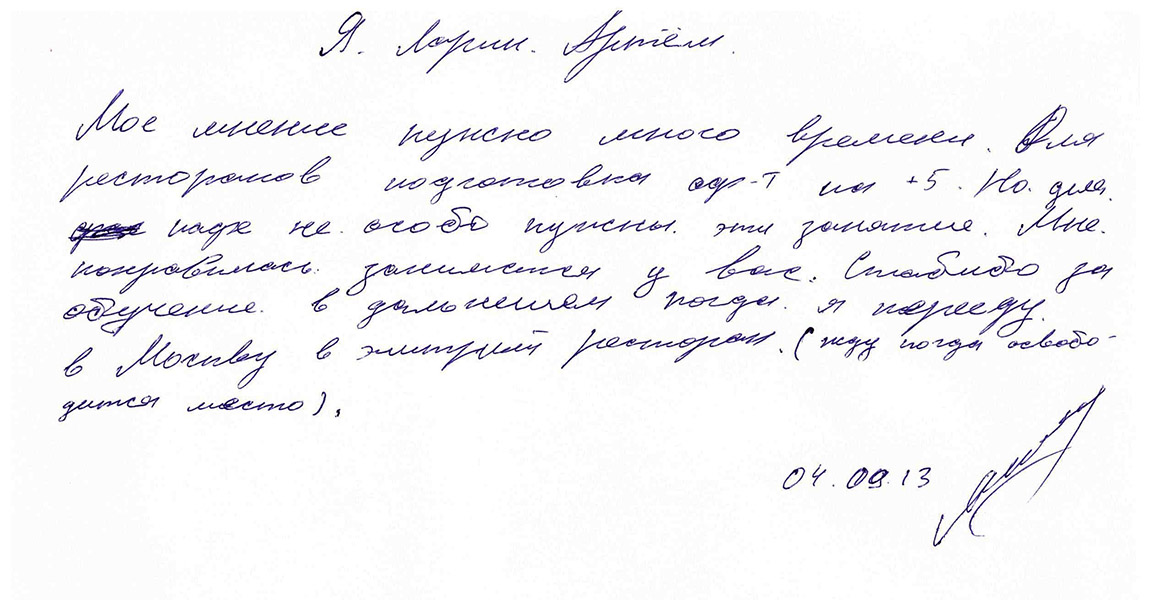 Я. Ларин. Артём.
Мое мнение нужно много времени. Для
ресторанов подготовка оф-т на +5. Но. для.
кафе не. особо нужны. эти занятие. Мне.
понравилась. заниматся у вас. Спасибо за
обучение. в дальнешем когда. я перееду.
в Москву в элитрый ресторан. (жду когда освобо-
дится место).
04.09.13